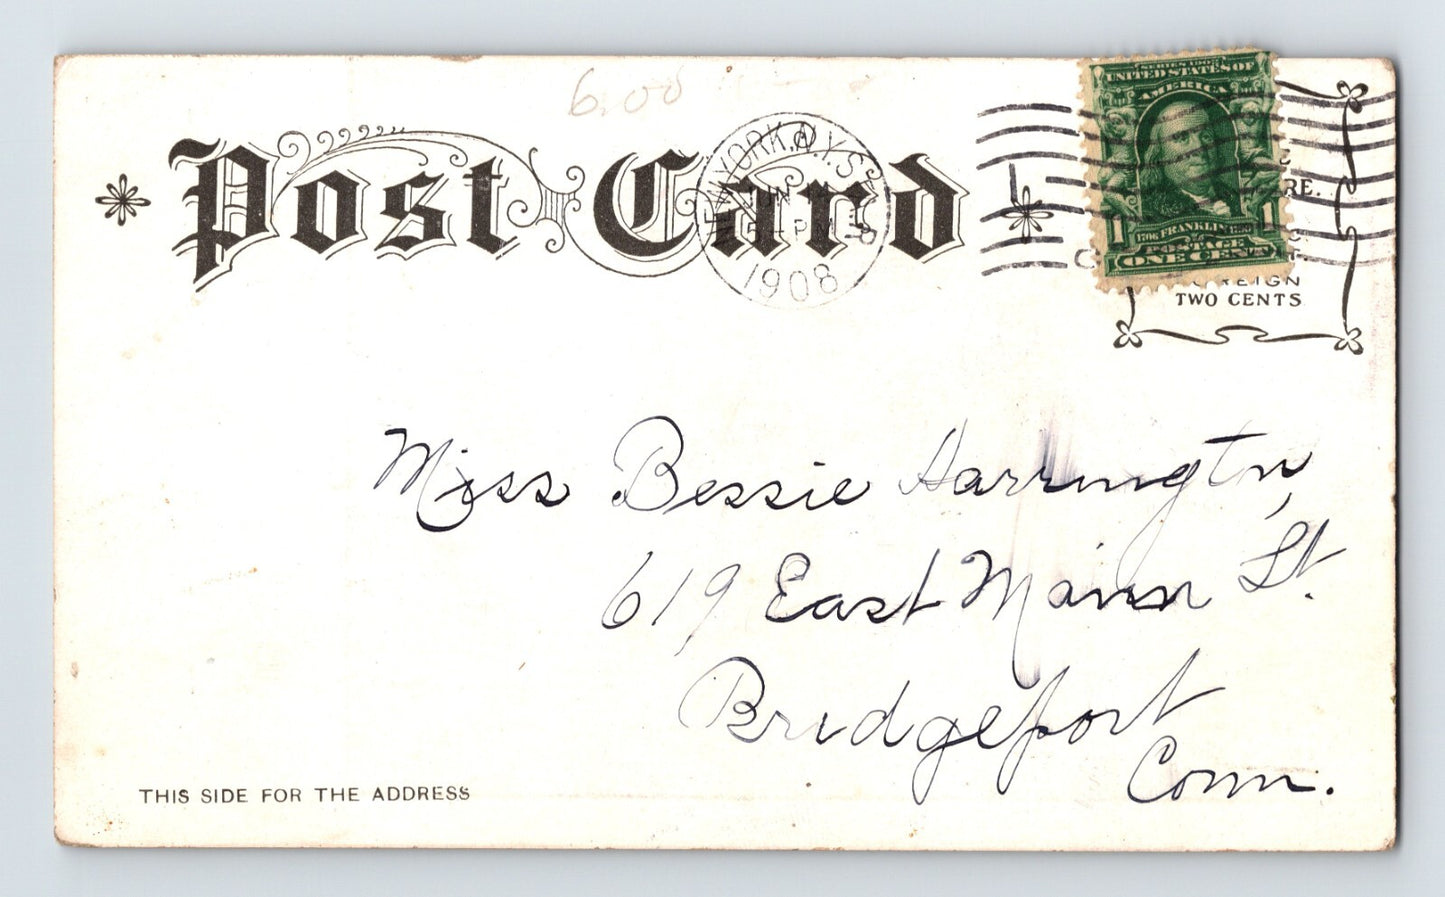 6.00
Post Card
NEW YORK, N.Y. STA
JUN
5-PM
1908
SERIES 1902
UNITED STATES OF
AMERICA
1 1
1706 FRANKLIN 1790
POSTAGE
ONE CENT
RE.
TWO CENTS
Miss Bessie Harrington,
619 East Main St.
Bridgeport
Conn.
THIS SIDE FOR THE ADDRESS